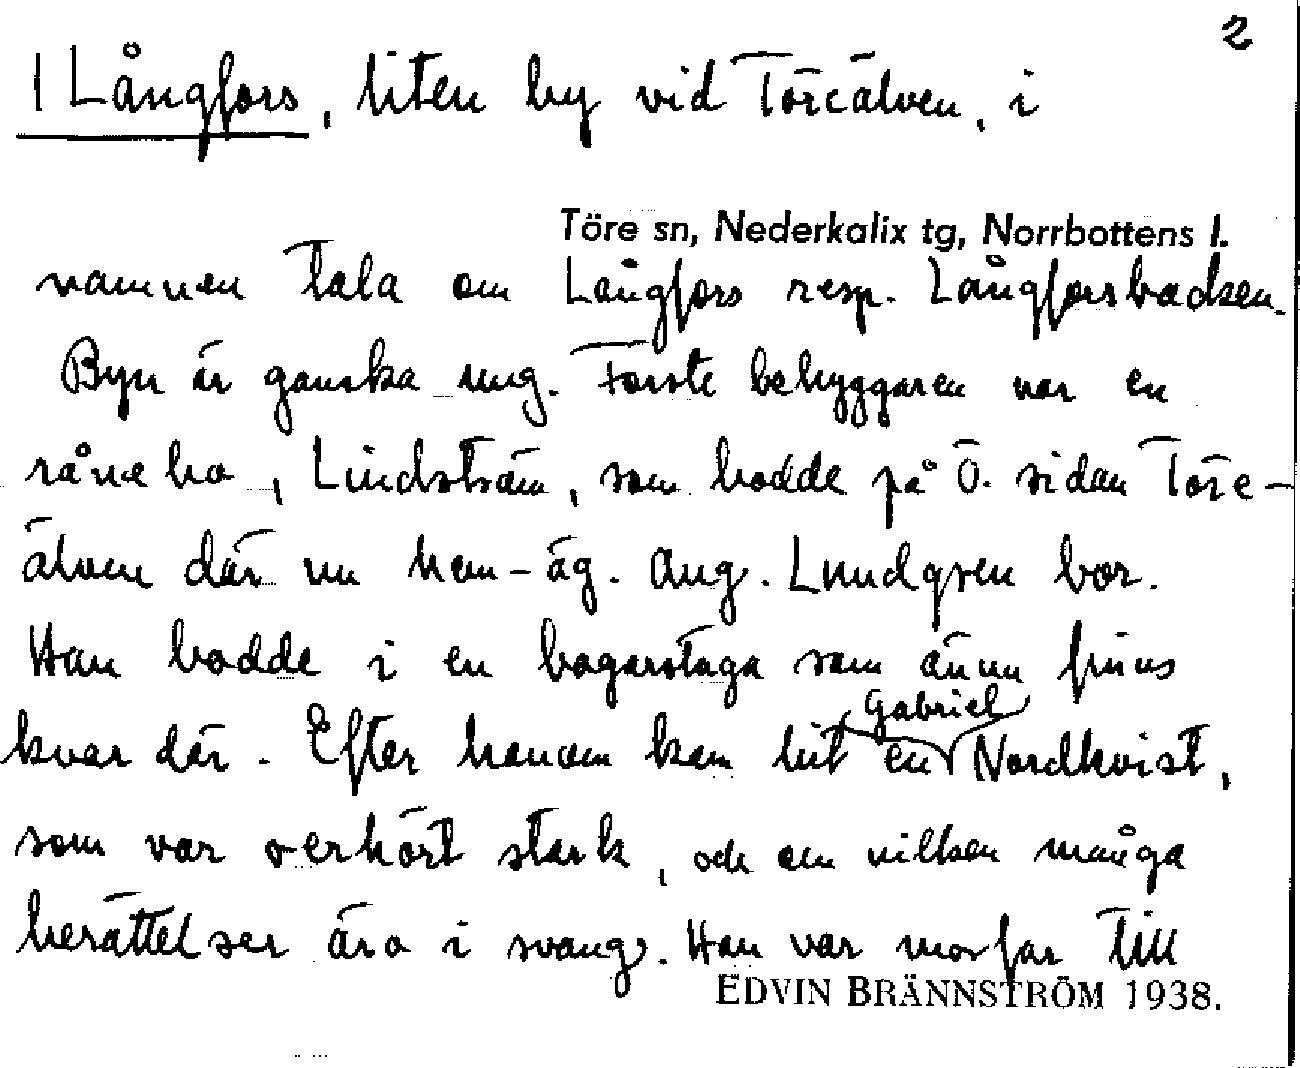 2
1 Långfors, liten by vid Töreälven, i
Töre sn, Nederkalix tg, Norrbottens l.
namnen tala om Långfors resp. Långforsbacken.
Byn är ganska ung. Förste bebyggaren var en
rånebo, Lindström, som bodde på ö. sidan Töre-
älven där nu hem-äg. Aug. Lundgren bor.
Han bodde i en bagarstuga som ännu finns
kvar där. Efter honom kom hit en Gabriel Nordkvist,
som var oerhört stark, och om vilken många
berättelser äro i svang. Han var morfar till
EDVIN BRÄNNSTRÖM 1938.